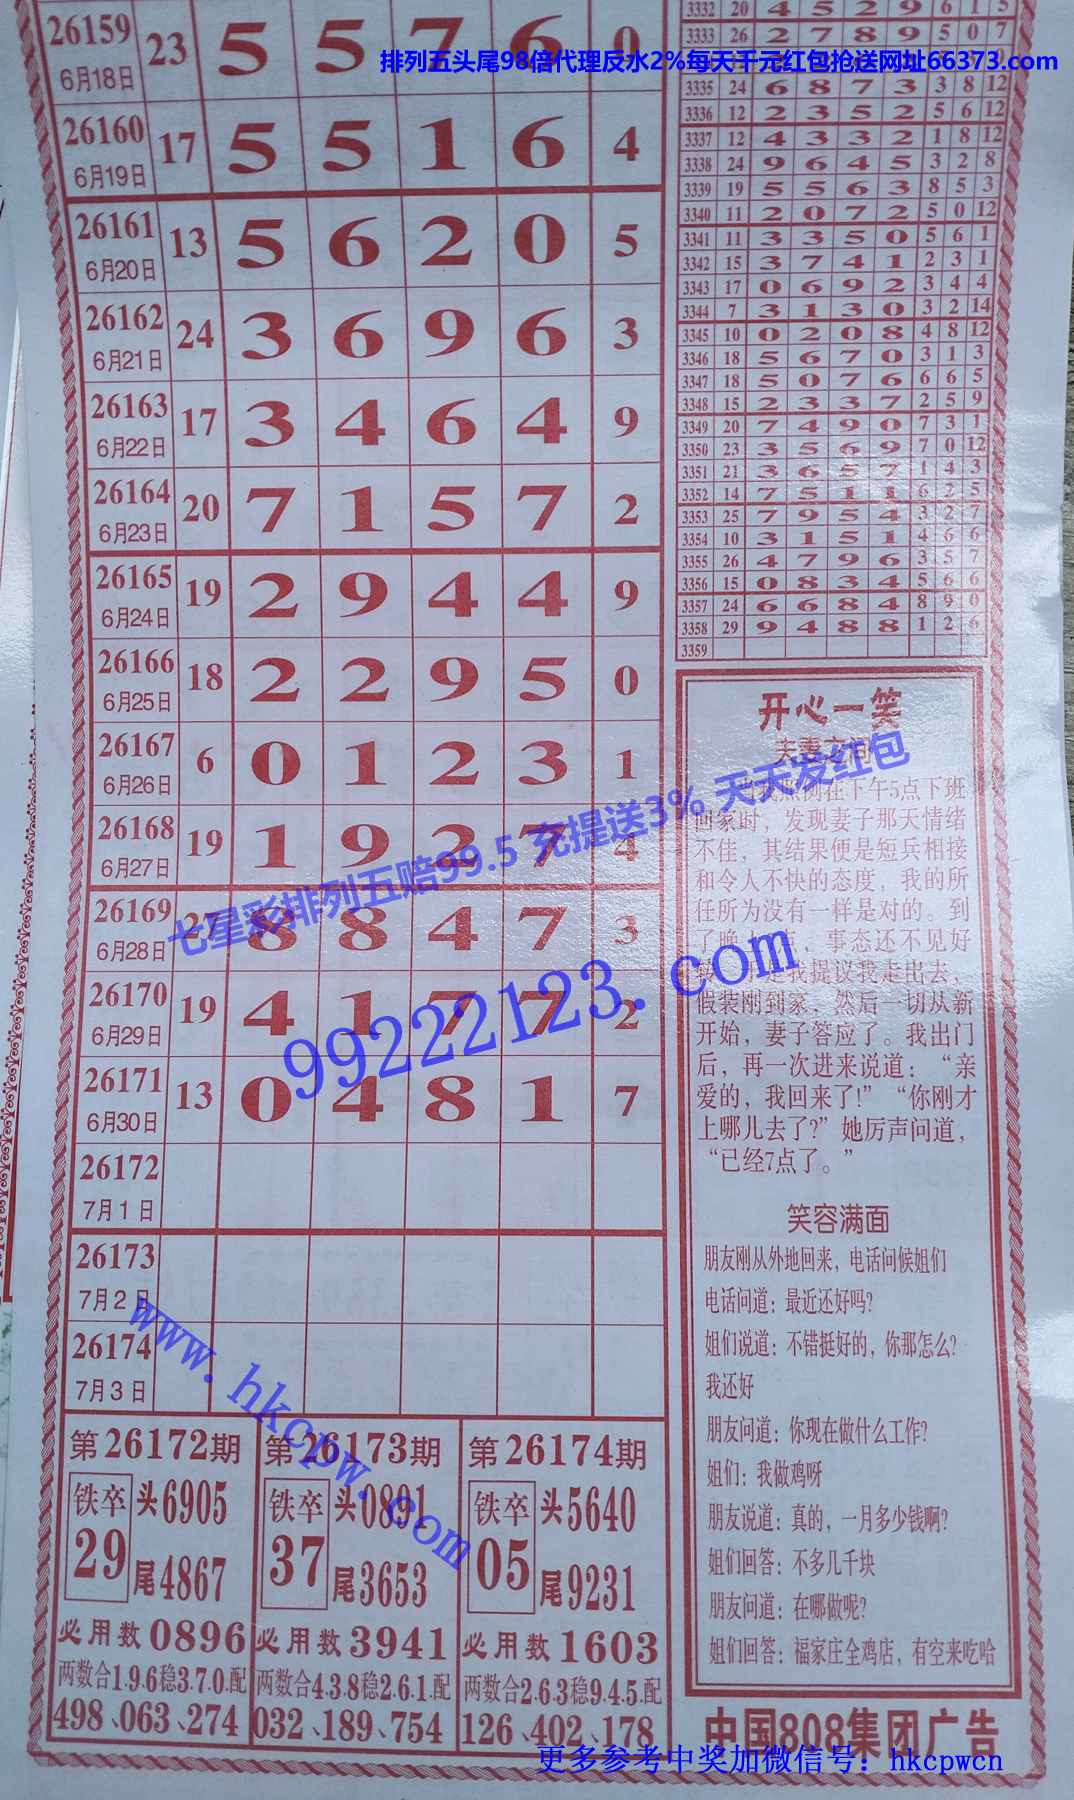 排列五头尾98倍代理反水2%每天千元红包抢送网址66373.com
26159 6月18日 23 5 5 7 6 0
26160 6月19日 17 5 5 1 6 4
26161 6月20日 13 5 6 2 0 5
26162 6月21日 24 3 6 9 6 3
26163 6月22日 17 3 4 6 4 9
26164 6月23日 20 7 1 5 7 2
26165 6月24日 19 2 9 4 4 9
26166 6月25日 18 2 2 9 5 0
26167 6月26日 6 0 1 2 3 1
26168 6月27日 19 1 9 2 7 4
26169 6月28日 27 8 8 4 7 3
26170 6月29日 19 4 1 7 7 2
26171 6月30日 13 0 4 8 1 7
26172 7月1日
26173 7月2日
26174 7月3日
3332 20 4 5 2 9 6 1 5
3333 26 2 7 8 9 5 0 7
3335 24 6 8 7 3 3 8 12
3336 12 2 3 5 2 5 6 12
3337 12 4 3 3 2 1 8 12
3338 24 9 6 4 5 3 2 8
3339 19 5 5 6 3 8 5 3
3340 11 2 0 7 2 5 0 12
3341 11 3 3 5 0 5 6 1
3342 15 3 7 4 1 2 3 1
3343 17 0 6 9 2 3 4 4
3344 7 3 1 3 0 3 2 14
3345 10 0 2 0 8 4 8 12
3346 18 5 6 7 0 3 1 3
3347 18 5 0 7 6 6 6 5
3348 15 2 3 3 7 2 5 9
3349 20 7 4 9 0 7 3 1
3350 23 3 5 6 9 7 0 12
3351 21 3 6 5 7 1 4 3
3352 14 7 5 1 1 6 2 5
3353 25 7 9 5 4 3 2 7
3354 10 3 1 5 1 4 6 6
3355 26 4 7 9 6 3 5 7
3356 15 0 8 3 4 5 6 6
3357 24 6 6 8 4 8 9 0
3358 29 9 4 8 8 1 2 6
3359
开心一笑
夫妻之间
在下午5点下班
回家时，发现妻子那天情绪
不佳，其结果便是短兵相接
和令人不快的态度，我的所
任所为没有一样是对的。到
了晚上 事态还不见好
我提议我走出去，
假装刚到家，然后一切从新
开始，妻子答应了。我出门
后，再一次进来说道：“亲
爱的，我回来了!”“你刚才
上哪儿去了?”她厉声问道，
“已经7点了。”
笑容满面
朋友刚从外地回来，电话问候姐们
电话问道：最近还好吗?
姐们说道：不错挺好的，你那怎么?
我还好
朋友问道：你现在做什么工作?
姐们：我做鸡呀
朋友说道：真的，一月多少钱啊?
姐们回答：不多几千块
朋友问道：在哪做呢?
姐们回答：福家庄全鸡店，有空来吃哈
七星彩排列五赔99.5 充提送3% 天天发红包
99222123.com
www.hkcpw.com
第26172期
铁卒 29 头6905
尾4867
必用数0896
两数合1.9.6稳3.7.0.配
498、063、274
第26173期
铁卒 37 头0891
尾3653
必用数3941
两数合4.3.8稳2.6.1.配
032、189、754
第26174期
铁卒 05 头5640
尾9231
必用数1603
两数合2.6.3稳9.4.5.配
126、402、178
中国808集团广告
更多参考中奖加微信号：hkcpwcn